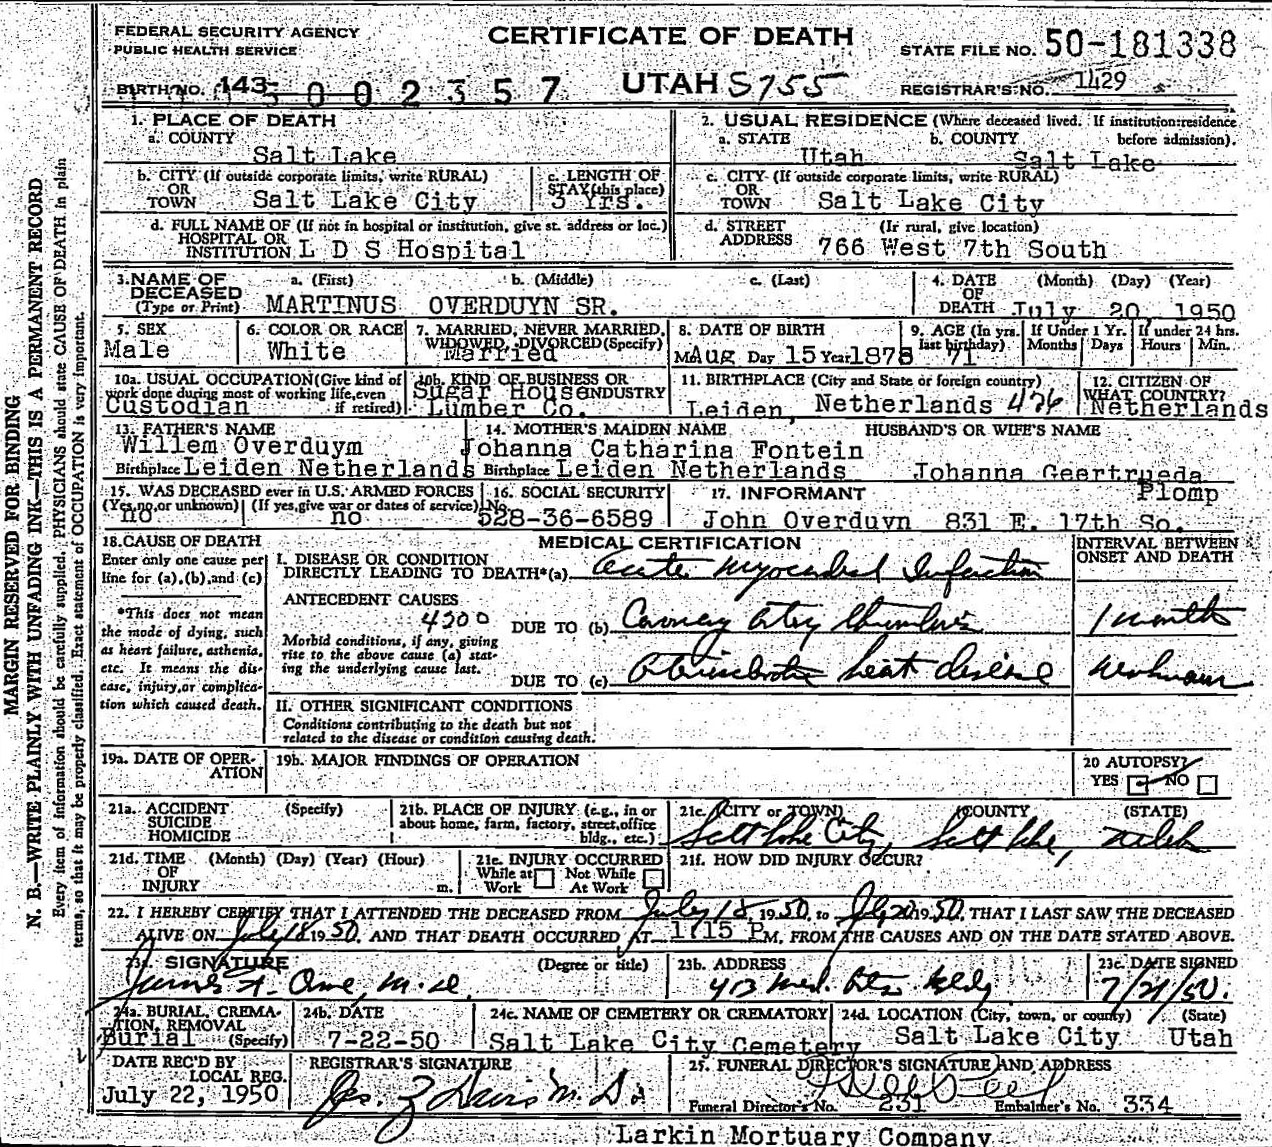 FEDERAL SECURITY AGENCY
PUBLIC HEALTH SERVICE
CERTIFICATE OF DEATH
STATE FILE NO. 50-181338
BIRTH NO. 143 5002357
UTAH S755
REGISTRAR'S NO. 1429
1. PLACE OF DEATH
a. COUNTY
Salt Lake
2. USUAL RESIDENCE (Where deceased lived. If institution: residence before admission).
a. STATE b. COUNTY
Utah Salt Lake
b. CITY (If outside corporate limits, write RURAL)
OR
TOWN Salt Lake City
c. LENGTH OF
STAY (this place)
3 Yrs.
c. CITY (If outside corporate limits, write RURAL)
OR
TOWN Salt Lake City
d. FULL NAME OF (If not in hospital or institution, give st. address or loc.)
HOSPITAL OR
INSTITUTION L D S Hospital
d. STREET (If rural, give location)
ADDRESS 766 West 7th South
3. NAME OF a. (First) b. (Middle) c. (Last)
DECEASED
(Type or Print) MARTINUS OVERDUYN SR.
4. DATE (Month) (Day) (Year)
OF
DEATH July 20, 1950
5. SEX
Male
6. COLOR OR RACE
White
7. MARRIED, NEVER MARRIED,
WIDOWED, DIVORCED (Specify)
Married
8. DATE OF BIRTH
M Aug Day 15 Year 1878
9. AGE (In yrs. last birthday)
71
If Under 1 Yr.
Months Days
If under 24 hrs.
Hours Min.
10a. USUAL OCCUPATION (Give kind of
work done during most of working life, even
if retired)
Custodian
10b. KIND OF BUSINESS OR
INDUSTRY
Sugar House
Lumber Co.
11. BIRTHPLACE (City and State or foreign country)
Leiden, Netherlands 476
12. CITIZEN OF
WHAT COUNTRY?
Netherlands
13. FATHER'S NAME
Willem Overduym
Birthplace Leiden Netherlands
14. MOTHER'S MAIDEN NAME
Johanna Catharina Fontein
Birthplace Leiden Netherlands
HUSBAND'S OR WIFE'S NAME
Johanna Geertrueda
Plomp
15. WAS DECEASED ever in U.S. ARMED FORCES
(Yes, no, or unknown) (If yes, give war or dates of service)
no no
16. SOCIAL SECURITY
No.
528-36-6589
17. INFORMANT
John Overduyn 831 E. 17th So.
18. CAUSE OF DEATH
Enter only one cause per
line for (a), (b), and (c)
*This does not mean
the mode of dying, such
as heart failure, asthenia,
etc. It means the dis-
ease, injury, or complica-
tion which caused death.
MEDICAL CERTIFICATION
INTERVAL BETWEEN
ONSET AND DEATH
I. DISEASE OR CONDITION
DIRECTLY LEADING TO DEATH*(a) Acute Myocardial Infarction
ANTECEDENT CAUSES
4200
DUE TO (b) Coronary Artery thrombosis 1 month
Morbid conditions, if any, giving
rise to the above cause (a) stat-
ing the underlying cause last.
DUE TO (c) Arteriosclerotic heart disease unknown
II. OTHER SIGNIFICANT CONDITIONS
Conditions contributing to the death but not
related to the disease or condition causing death.
19a. DATE OF OPER-
ATION
19b. MAJOR FINDINGS OF OPERATION
20 AUTOPSY?
YES NO
21a. ACCIDENT (Specify)
SUICIDE
HOMICIDE
21b. PLACE OF INJURY (e.g., in or
about home, farm, factory, street, office
bldg., etc.)
21c. (CITY or TOWN) (COUNTY (STATE)
Salt Lake City, Salt Lake, Utah
21d. TIME (Month) (Day) (Year) (Hour)
OF
INJURY m.
21e. INJURY OCCURRED
While at Not While
Work At Work
21f. HOW DID INJURY OCCUR?
22. I HEREBY CERTIFY THAT I ATTENDED THE DECEASED FROM July 18, 1950, to July 20 1950, THAT I LAST SAW THE DECEASED
ALIVE ON July 18 1950, AND THAT DEATH OCCURRED AT 1:15 P M, FROM THE CAUSES AND ON THE DATE STATED ABOVE.
23a. SIGNATURE (Degree or title)
James A. M.D.
23b. ADDRESS
413 Med. Arts Bldg
23c. DATE SIGNED
7/21/50.
24a. BURIAL, CREMA-
TION, REMOVAL
Burial (Specify)
24b. DATE
7-22-50
24c. NAME OF CEMETERY OR CREMATORY
Salt Lake City Cemetery
24d. LOCATION (City, town, or county) (State)
Salt Lake City Utah
DATE REC'D BY
LOCAL REG.
July 22, 1950
REGISTRAR'S SIGNATURE
Jas. Z Davis M.D.
25. FUNERAL DIRECTOR'S SIGNATURE AND ADDRESS
Funeral Director's No. 231 Embalmer's No. 334
Larkin Mortuary Company
MARGIN RESERVED FOR BINDING
N. B.—WRITE PLAINLY WITH UNFADING INK—THIS IS A PERMANENT RECORD
Every item of information should be carefully supplied. PHYSICIANS should state CAUSE OF DEATH in plain
terms, so that it may be properly classified. Exact statement of OCCUPATION is very important.